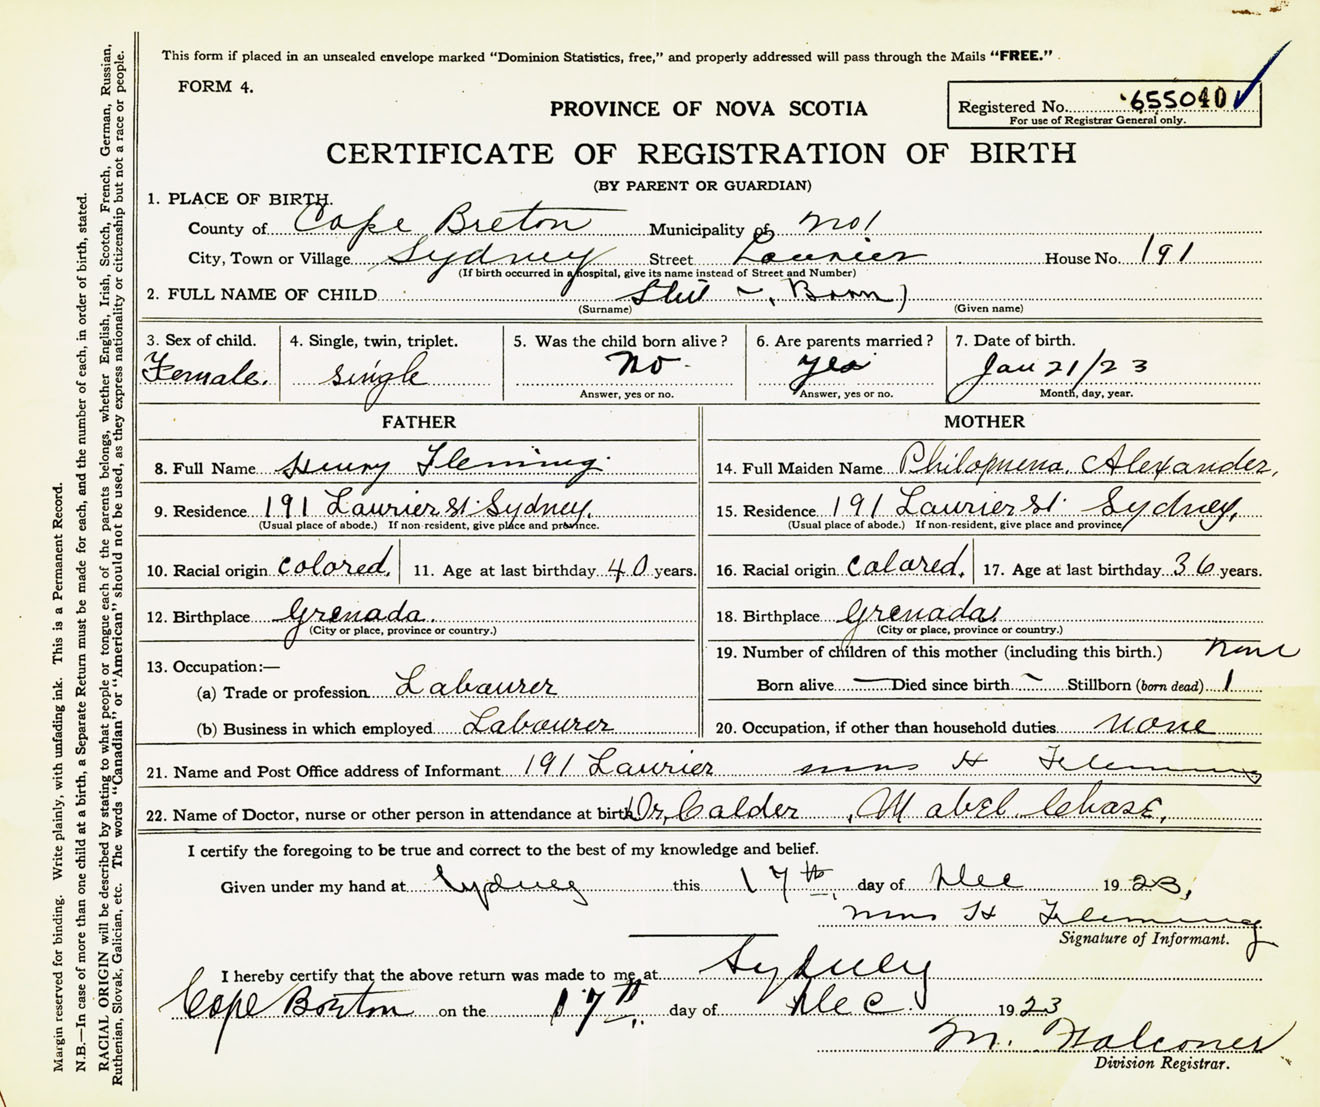 This form if placed in an unsealed envelope marked "Dominion Statistics, free," and properly addressed will pass through the Mails "FREE."
FORM 4.
PROVINCE OF NOVA SCOTIA
Registered No. 655040
For use of Registrar General only.
CERTIFICATE OF REGISTRATION OF BIRTH
(BY PARENT OR GUARDIAN)
1. PLACE OF BIRTH.
County of Cape Breton Municipality of No 1
City, Town or Village Sydney Street Laurier House No. 191
(If birth occurred in a hospital, give its name instead of Street and Number)
2. FULL NAME OF CHILD Still Born)
(Surname) (Given name)
3. Sex of child. 4. Single, twin, triplet. 5. Was the child born alive? 6. Are parents married? 7. Date of birth.
Female. single No. yes Jan 21/23
Answer, yes or no. Answer, yes or no. Month, day, year.
FATHER MOTHER
8. Full Name Henry Fleming. 14. Full Maiden Name Philopmena. Alexander,
9. Residence 191 Laurier st. Sydney. 15. Residence 191 Laurier st Sydney.
(Usual place of abode.) If non-resident, give place and province. (Usual place of abode.) If non-resident, give place and province,
10. Racial origin colored. 11. Age at last birthday 40 years. 16. Racial origin colored. 17. Age at last birthday 36 years.
12. Birthplace Grenada. 18. Birthplace Grenada.
(City or place, province or country.) (City or place, province or country.)
13. Occupation:— 19. Number of children of this mother (including this birth.) none
(a) Trade or profession Labourer Born alive — Died since birth ~ Stillborn (born dead) 1
(b) Business in which employed Labourer 20. Occupation, if other than household duties none
21. Name and Post Office address of Informant 191 Laurier mrs H Fleming
22. Name of Doctor, nurse or other person in attendance at birth Dr, Calder , Mabel Chase,
I certify the foregoing to be true and correct to the best of my knowledge and belief.
Given under my hand at Sydney this 17th day of Dec 1923,
mrs H Fleming
Signature of Informant.
I hereby certify that the above return was made to me at Sydney
Cape Breton on the 17th day of Dec. 1923
M. Falconer
Division Registrar.
Margin reserved for binding. Write plainly, with unfading ink. This is a Permanent Record.
N.B.—In case of more than one child at a birth, a Separate Return must be made for each, and the number of each, in order of birth, stated.
RACIAL ORIGIN will be described by stating to what people or tongue each of the parents belongs, whether English, Irish, Scotch, French, German, Russian,
Ruthenian, Slovak, Galician, etc. The words "Canadian" or "American" should not be used, as they express nationality or citizenship but not a race or people.